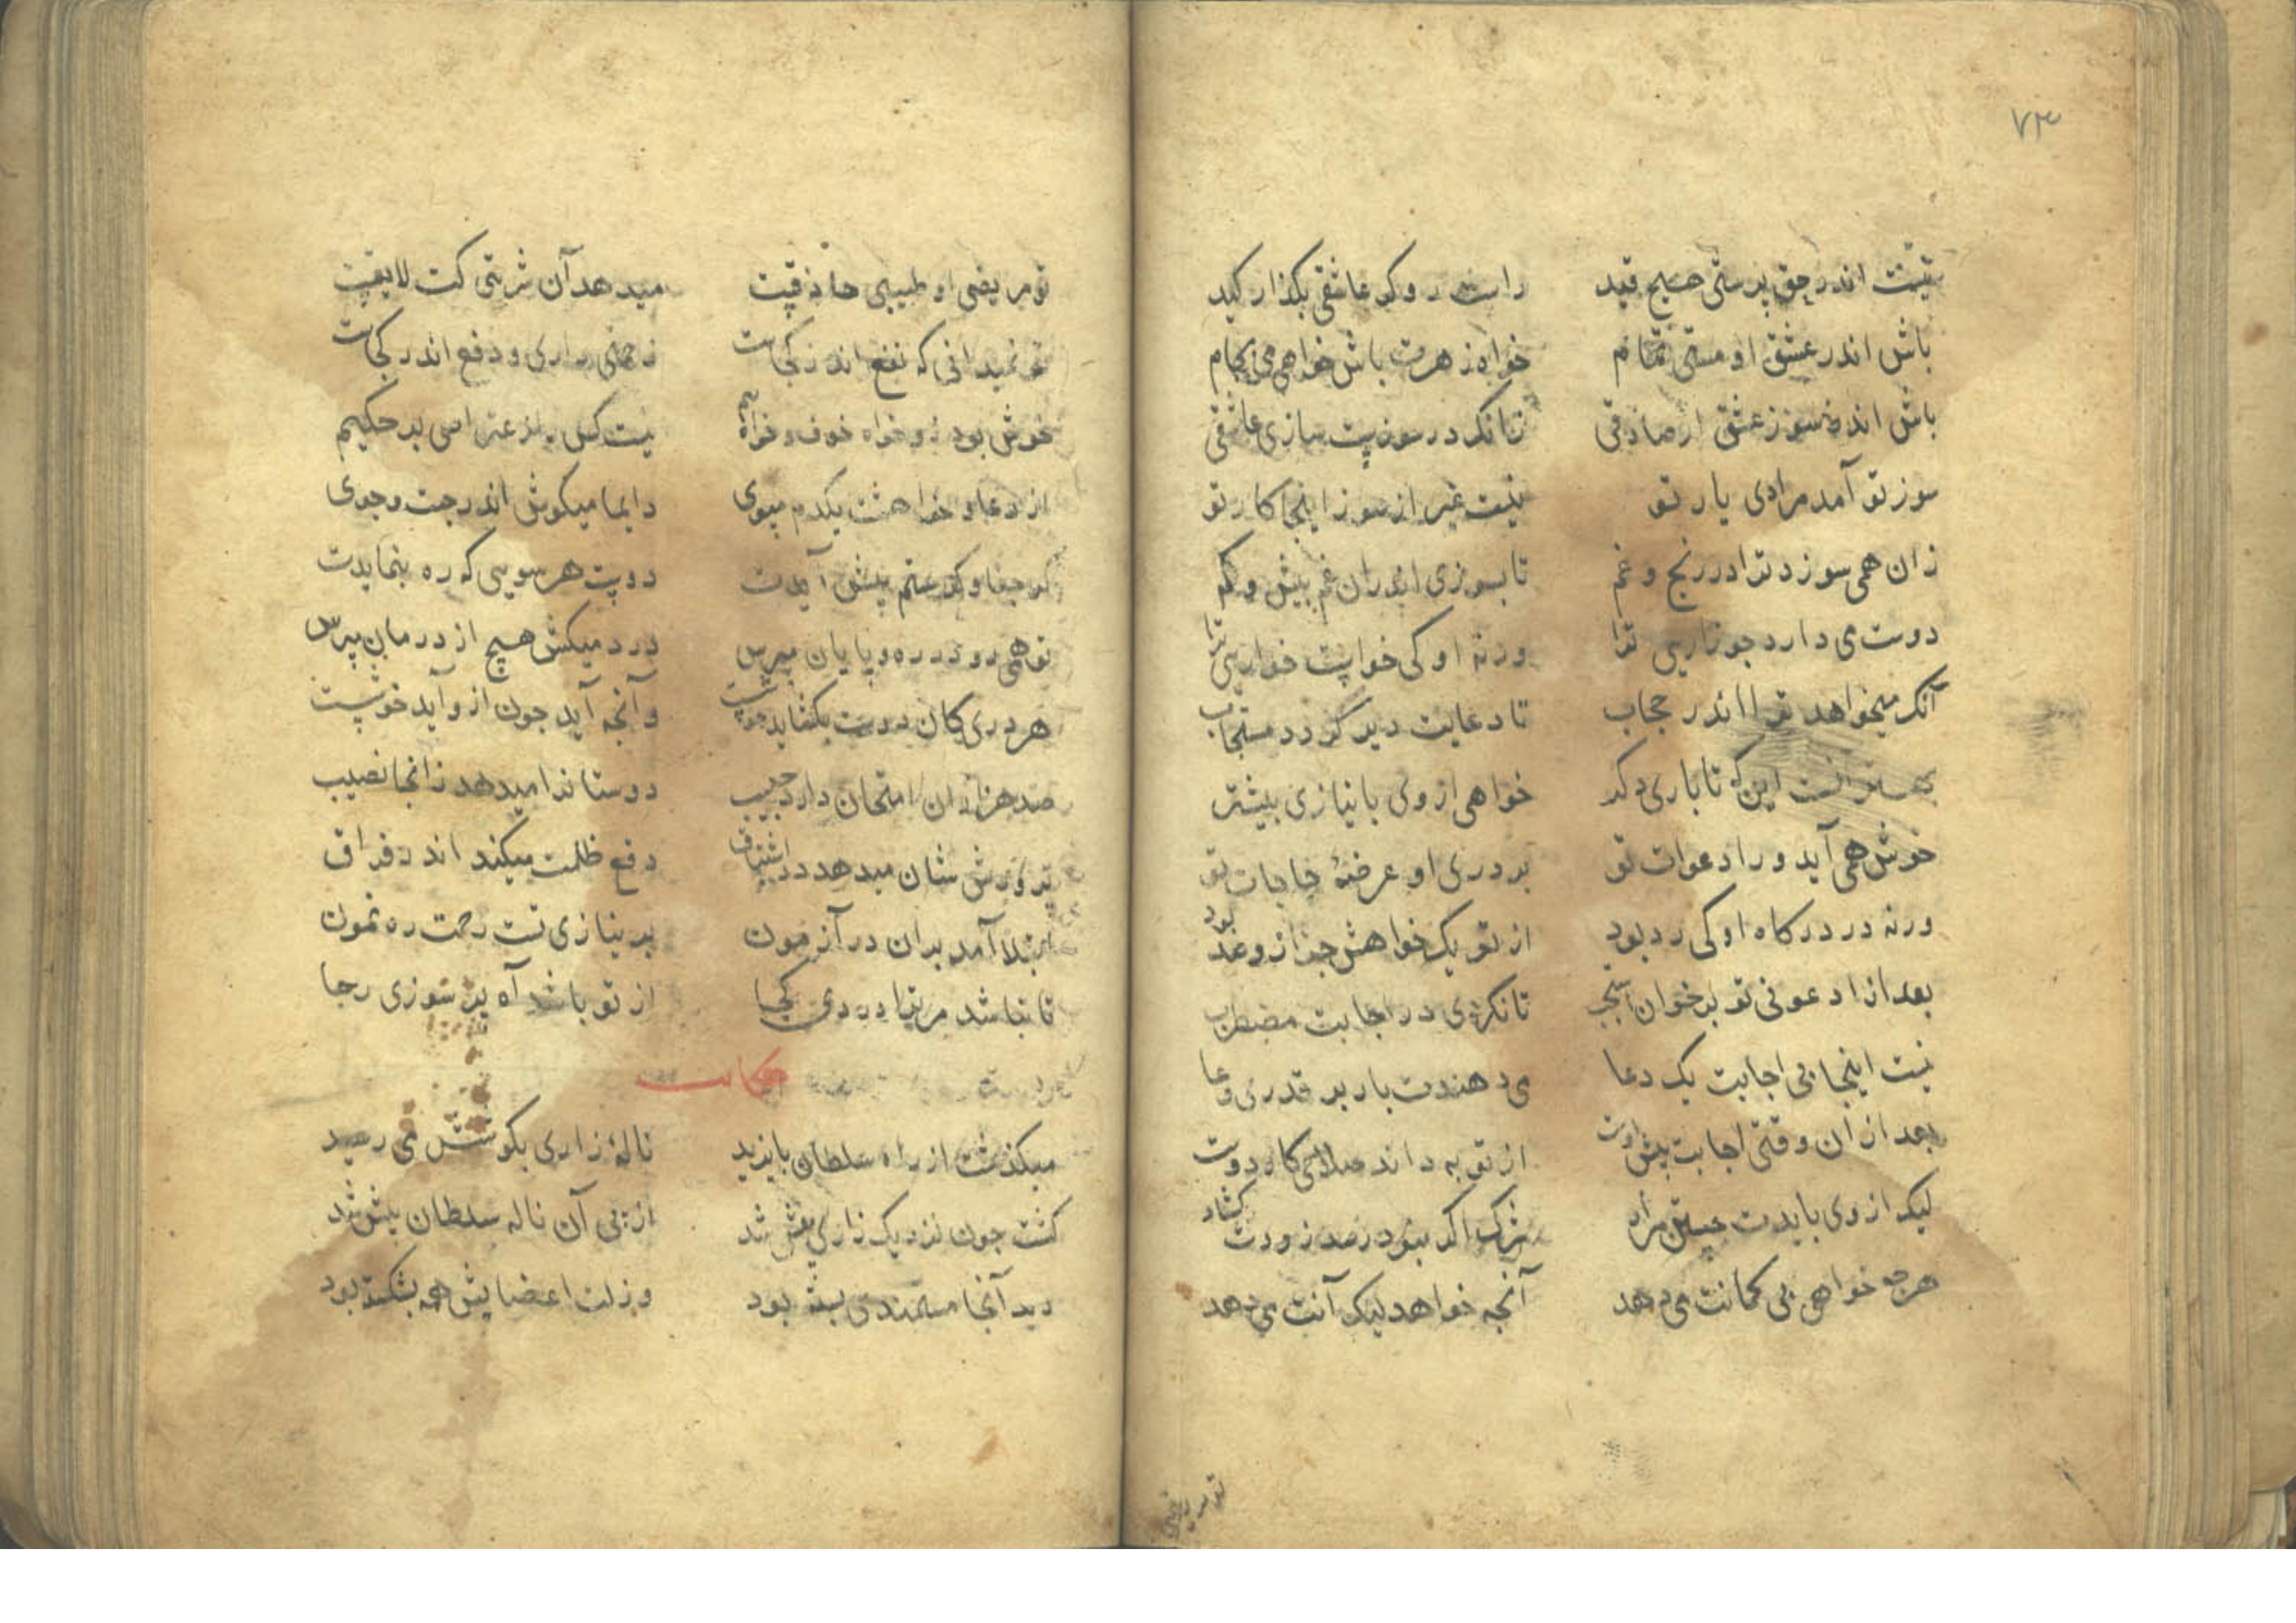 ۷۳
نیست اندر حق پرستی هیچ قید راست رو کر عاشقی بکذار کید
باش اندر عشق او مستی تمام خواه زهرت باش خواهی می بجام
باش اندر سوز عشق ار صادقی زانکه در سوزیست بازی عاشقی
سوز تو آمد مرادی یار تو نیست غیر از سوز اینجا کار تو
زان همی سوزد ترا در رنج و غم تا بسوزی اندران غم بیش و کم
دوست می دارد جو زاریی ترا ورنه او کی خواست خواریی ترا
آنکه میخواهد ترا اندر حجاب تا دعایت دیر کردد مستجاب
بهر آنست این که تا باری دکر خواهی از وی با نیازی بیشتر
خوش همی آید ورا دعوات تو بر دری او عرضهٔ حاجات تو
ورنه در درکاه او کی رد بود از تو یک خواهش جز از وعد بود
بعد از ادعونی تو بر خوان استجب تا نکردی در اجابت مضطرب
نیست اینجا بی اجابت یک دعا می دهندت بار بر قدری وعا
بعد از ان وقتی اجابت پیش اوست از تو به داند صلاحی کار دوست
لیک از وی بایدت جستن مراد شرک اکر نبود رصد زودت کشاد
هرجه خواهی بی کمانت می دهد آنجه خواهد لیک آنت می دهد
تو مریضی
تو مریضی او طبیبی حاذقیت میدهد آن شربتی کت لایقیت
تو نمیدانی که نفع اندر کجاست زحمتی داری و دفع اندر کجاست
خوش بود زو خواه خوف و خواه بیم نیست کس را اعتراض بر حکیم
از دعا و خواهشت یکدم مپوی دایما میکوش اندر جست و جوی
کر جفا و کر ستم پیش آیدت دوست هر سویی که ره بنمایدت
تو همی رو در ره و پایان مپرس درد میکش هیچ از درمان مپرس
هر دری کان دوست بکشاید خوشست وآنجه آید جون از و آید خوشست
صد هزاران امتحان دارد حبیب دوستانرا میدهد زانجا نصیب
پرورش شان میدهد در اشتیاق دفع ظلمت میکند اندر فراق
ابتلا آمد بران در آزمون بر نیازی تست رحمت ره نمون
تا نباشد مر ترا دردی کجا از تو باشد آه پر سوزی رجا
حکایت
میکذشت از راه سلطان بایزید نالهٔ زاری بکوشش می رسید
کشت جون نزدیک زاری بیش شد از پی آن ناله سلطان پیش شد
دید آنجا مستمندی خسته بود وزلت اعضایش همه بشکسته بود